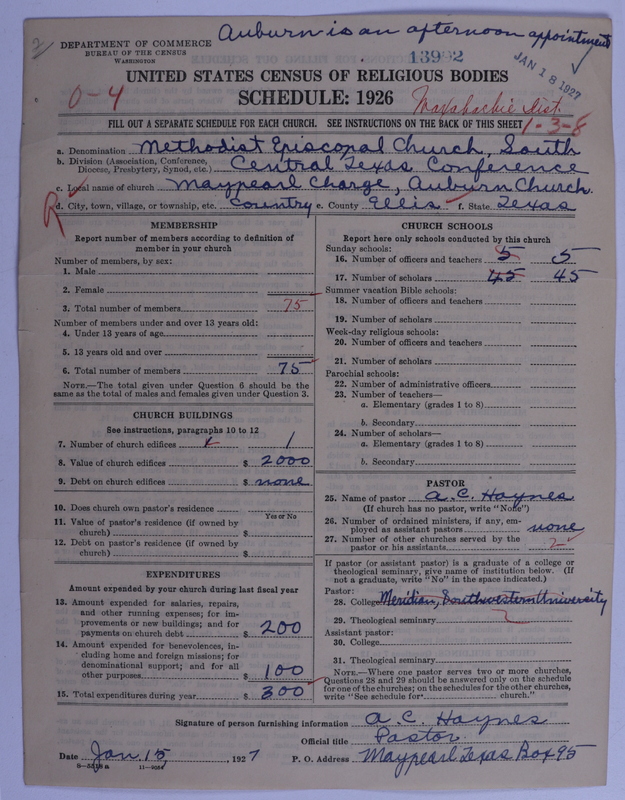 Auburn is an afternoon appointment
2
DEPARTMENT OF COMMERCE
BUREAU OF THE CENSUS
WASHINGTON
13992
JAN 18 1927
UNITED STATES CENSUS OF RELIGIOUS BODIES
SCHEDULE: 1926
0-4
Waxahachie Dist.
FILL OUT A SEPARATE SCHEDULE FOR EACH CHURCH. SEE INSTRUCTIONS ON THE BACK OF THIS SHEET
1-3-8
a. Denomination Methodist Episcopal Church, South
b. Division (Association, Conference, Diocese, Presbytery, Synod, etc.) Central Texas Conference
c. Local name of church Maypearl Charge, Auburn Church.
R
d. City, town, village, or township, etc. Country e. County Ellis f. State Texas
MEMBERSHIP
Report number of members according to definition of
member in your church
Number of members, by sex:
1. Male
2. Female
3. Total number of members 75
Number of members under and over 13 years old:
4. Under 13 years of age
5. 13 years old and over
6. Total number of members 75
NOTE.—The total given under Question 6 should be the
same as the total of males and females given under Question 3.
CHURCH BUILDINGS
See instructions, paragraphs 10 to 12
7. Number of church edifices 1
8. Value of church edifices $ 2000
9. Debt on church edifices $ none
10. Does church own pastor's residence
Yes or No
11. Value of pastor's residence (if owned by
church) $
12. Debt on pastor's residence (if owned by
church) $
EXPENDITURES
Amount expended by your church during last fiscal year
13. Amount expended for salaries, repairs,
and other running expenses; for im-
provements or new buildings; and for
payments on church debt $ 200
14. Amount expended for benevolences, in-
cluding home and foreign missions; for
denominational support; and for all
other purposes $ 100
15. Total expenditures during year $ 300
CHURCH SCHOOLS
Report here only schools conducted by this church
Sunday schools:
16. Number of officers and teachers 5 5
17. Number of scholars 45 45
Summer vacation Bible schools:
18. Number of officers and teachers
19. Number of scholars
Week-day religious schools:
20. Number of officers and teachers
21. Number of scholars
Parochial schools:
22. Number of administrative officers
23. Number of teachers—
a. Elementary (grades 1 to 8)
b. Secondary
24. Number of scholars—
a. Elementary (grades 1 to 8)
b. Secondary
PASTOR
25. Name of pastor A. C. Haynes
(If church has no pastor, write "None")
26. Number of ordained ministers, if any, em-
ployed as assistant pastors none
27. Number of other churches served by the
pastor or his assistants 2
If pastor (or assistant pastor) is a graduate of a college or
theological seminary, give name of institution below. (If
not a graduate, write "No" in the space indicated.)
Pastor:
28. College Meridian, Southwestern University
29. Theological seminary
Assistant pastor:
30. College
31. Theological seminary
NOTE.—Where one pastor serves two or more churches,
Questions 28 and 29 should be answered only on the schedule
for one of the churches; on the schedules for the other churches,
write "See schedule for church."
Signature of person furnishing information A. C. Haynes
Official title Pastor
Date Jan. 15, 1927 P. O. Address Maypearl Texas Box 95
11—9054